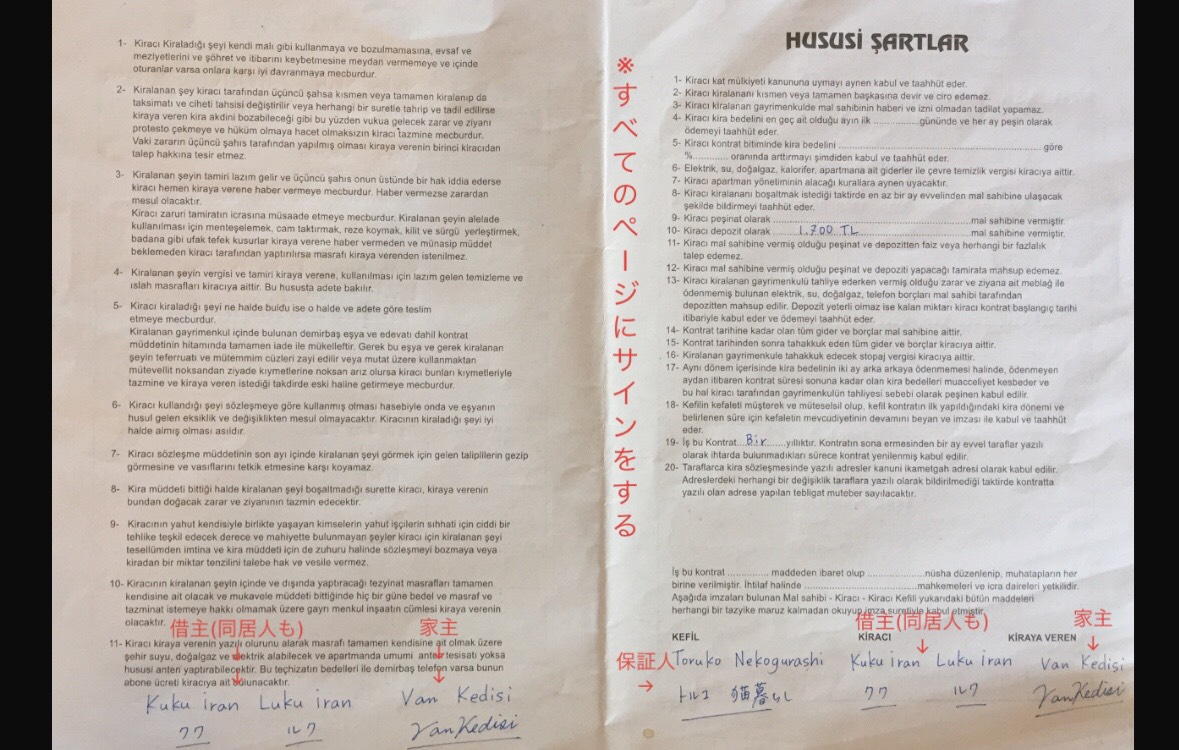 1- Kiracı Kiraladığı şeyi kendi malı gibi kullanmaya ve bozulmamasına, evsaf ve
meziyetlerini ve şöhret ve itibarını keybetmesine meydan vermemeye ve içinde
oturanlar varsa onlara karşı iyi davranmaya mecburdur.
2- Kiralanan şey kiracı tarafından üçüncü şahsa kısmen veya tamamen kiralanıp da
taksimatı ve ciheti tahsisi değiştirilir veya herhangi bir suretle tahrip ve tadil edilirse
kiraya veren kira akdini bozabileceği gibi bu yüzden vukua gelecek zarar ve ziyanı
protesto çekmeye ve hüküm olmaya hacet olmaksızın kiracı tazmine mecburdur.
Vaki zararın üçüncü şahıs tarafından yapılmış olması kiraya verenin birinci kiracıdan
talep hakkına tesir etmez.
3- Kiralanan şeyin tamiri lazım gelir ve üçüncü şahıs onun üstünde bir hak iddia ederse
kiracı hemen kiraya verene haber vermeye mecburdur. Haber vermezse zarardan
mesul olacaktır.
Kiracı zaruri tamiratın icrasına müsaade etmeye mecburdur. Kiralanan şeyin alelade
kullanılması için menteşelemek, cam taktırmak, reze koymak, kilit ve sürgü yerleştirmek,
badana gibi ufak tefek kusurlar kiraya verene haber vermeden ve münasip müddet
beklemeden kiracı tarafından yaptırılırsa masrafı kiraya verenden istenilmez.
4- Kiralanan şeyin vergisi ve tamiri kiraya verene, kullanılması için lazım gelen temizleme ve
ıslah masrafları kiracıya aittir. Bu hususta adete bakılır.
5- Kiracı kiraladığı şeyi ne halde buldu ise o halde ve adete göre teslim
etmeye mecburdur.
Kiralanan gayrimenkul içinde bulunan demirbaş eşya ve edevatı dahil kontrat
müddetinin hitamında tamamen iade ile mükelleftir. Gerek bu eşya ve gerek kiralanan
şeyin teferruatı ve mütemmim cüzleri zayi edilir veya mutat üzere kullanmaktan
mütevellit noksandan ziyade kıymetlerine noksan arız olursa kiracı bunları kıymetleriyle
tazmine ve kiraya veren istediği takdirde eski haline getirmeye mecburdur.
6- Kiracı kullandığı şeyi sözleşmeye göre kullanmış olması hasebiyle onda ve eşyanın
husul gelen eksiklik ve değişiklikten mesul olmayacaktır. Kiracının kiraladığı şeyi iyi
halde almış olması asıldır.
7- Kiracı sözleşme müddetinin son ayı içinde kiralanan şeyi görmek için gelen taliplilerin gezip
görmesine ve vasıflarını tetkik etmesine karşı koyamaz.
8- Kira müddeti bittiği halde kiralanan şeyi boşaltmadığı surette kiracı, kiraya verenin
bundan doğacak zarar ve ziyanının tazmin edecektir.
9- Kiracının yahut kendisiyle birlikte yaşayan kimselerin yahut işçilerin sıhhati için ciddi bir
tehlike teşkil edecek derece ve mahiyette bulunmayan şeyler kiracı için kiralanan şeyi
tesellümden imtina ve kira müddeti için de zuhuru halinde sözleşmeyi bozmaya veya
kiradan bir miktar tenzilini talebe hak ve vesile vermez.
10- Kiracının kiralanan şeyin içinde ve dışında yaptıracağı tezyinat masrafları tamamen
kendisine ait olacak ve mukavele müddeti bittiğinde hiç bir güne bedel ve masraf ve
tazminat istemeye hakkı olmamak üzere gayri menkul inşaatın cümlesi kiraya verenin
olacaktır.
借主(同居人も) 家主
11- Kiracı kiraya verenin yazılı olurunu alarak masrafı tamamen kendisine ait olmak üzere
şehir suyu, doğalgaz ve elektrik alabilecek ve apartmanda umumi anten tesisatı yoksa
hususi anten yaptırabilecektir. Bu teçhizatın bedelleri ile demirbaş telefon varsa bunun
abone ücreti kiracıya ait olunacaktır.
Kuku iran Luku iran Van Kedisi
クク ルク VanKedisi
※すべてのページにサインをする
HUSUSİ ŞARTLAR
1- Kiracı kat mülkiyeti kanununa uymayı aynen kabul ve taahhüt eder.
2- Kiracı kiralananı kısmen veya tamamen başkasına devir ve ciro edemez.
3- Kiracı kiralanan gayrimenkulde mal sahibinin haberi ve izni olmadan tadilat yapamaz.
4- Kiracı kira bedelini en geç ait olduğu ayın ilk ................gününde ve her ay peşin olarak
ödemeyi taahhüt eder.
5- Kiracı kontrat bitiminde kira bedelini ................................................ göre
%............. oranında arttırmayı şimdiden kabul ve taahhüt eder.
6- Elektrik, su, doğalgaz, kalorifer, apartmana ait giderler ile çevre temizlik vergisi kiracıya aittir.
7- Kiracı apartman yönetiminin alacağı kurallara aynen uyacaktır.
8- Kiracı kiralananı boşaltmak istediği taktirde en az bir ay evvelinden mal sahibine ulaşacak
şekilde bildirmeyi taahhüt eder.
9- Kiracı peşinat olarak ................................................mal sahibine vermiştir.
10- Kiracı depozit olarak ......1.700 TL......mal sahibine vermiştir.
11- Kiracı mal sahibine vermiş olduğu peşinat ve depozitten faiz veya herhangi bir fazlalık
talep edemez.
12- Kiracı mal sahibine vermiş olduğu peşinat ve depoziti yapacağı tamirata mahsup edemez.
13- Kiracı kiralanan gayrimenkulü tahliye ederken vermiş olduğu zarar ve ziyana ait meblağ ile
ödenmemiş bulunan elektrik, su, doğalgaz, telefon borçları mal sahibi tarafından
depozitten mahsup edilir. Depozit yeterli olmaz ise kalan miktarı kiracı kontrat başlangıç tarihi
itibariyle kabul eder ve ödemeyi taahhüt eder.
14- Kontrat tarihine kadar olan tüm gider ve borçlar mal sahibine aittir.
15- Kontrat tarihinden sonra tahakkuk eden tüm gider ve borçlar kiracıya aittir.
16- Kiralanan gayrimenkule tahakkuk edecek stopaj vergisi kiracıya aittir.
17- Aynı dönem içerisinde kira bedelinin iki ay arka arkaya ödenmemesi halinde, ödenmeyen
aydan itibaren kontrat süresi sonuna kadar olan kira bedelleri muacceliyet kesbeder ve
bu hal kiracı tarafından gayrimenkulün tahliyesi sebebi olarak peşinen kabul edilir.
18- Kefilin kefaleti müşterek ve müteselsil olup, kefil kontratın ilk yapıldığındaki kira dönemi ve
belirlenen süre için kefaletin mevcudiyetinin devamını beyan ve imzası ile kabul ve taahhüt
eder.
19- İş bu Kontrat...Bir......yıllıktır. Kontratın sona ermesinden bir ay evvel taraflar yazılı
olarak ihtarda bulunmadıkları sürece kontrat yenilenmiş kabul edilir.
20- Taraflarca kira sözleşmesinde yazılı adresler kanuni ikametgah adresi olarak kabul edilir.
Adreslerdeki herhangi bir değişiklik taraflara yazılı olarak bildirilmediği taktirde kontratta
yazılı olan adrese yapılan tebligat muteber sayılacaktır.
İş bu kontrat ................ maddeden ibaret olup ................nüsha düzenlenip, muhatapların her
birine verilmiştir. İhtilaf halinde ................................ mahkemeleri ve icra daireleri yetkilidir.
Aşağıda imzaları bulunan Mal sahibi - Kiracı - Kiracı Kefili yukarıdaki bütün maddeleri
herhangi bir tazyike maruz kalmadan okuyup imza suretiyle kabul etmiştir.
借主(同居人も) 家主
KEFİL KİRACI KİRAYA VEREN
保証人 Toruko Nekogurashi Kuku iran Luku iran Van Kedisi
トルコ 猫暮らし クク ルク VanKedisi